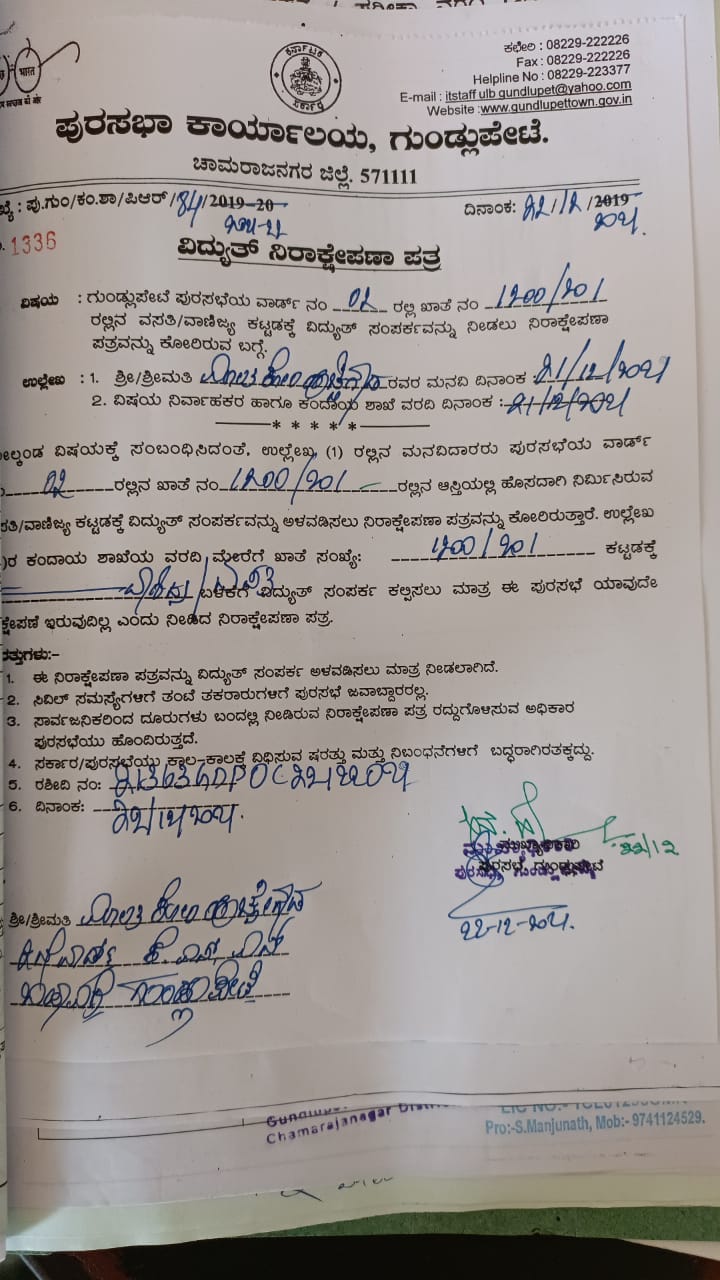 भारत
ಕರ್ನಾಟಕ
ಸರ್ಕಾರ
ಕಛೇರಿ : 08229-222226
Fax : 08229-222226
Helpline No : 08229-223377
E-mail : itstaff ulb gundlupet@yahoo.com
Website :www.gundlupettown.gov.in
ಪುರಸಭಾ ಕಾರ್ಯಾಲಯ, ಗುಂಡ್ಲುಪೇಟೆ.
ಚಾಮರಾಜನಗರ ಜಿಲ್ಲೆ. 571111
ಖ್ಯೆ : ಪು.ಗುಂ/ಕಂ.ಶಾ/ಪಿಆರ್/84/2019-20 ದಿನಾಂಕ: 22/12/2019
2021-22 2021.
1336
ವಿದ್ಯುತ್ ನಿರಾಕ್ಷೇಪಣಾ ಪತ್ರ
ವಿಷಯ : ಗುಂಡ್ಲುಪೇಟೆ ಪುರಸಭೆಯ ವಾರ್ಡ್ ನಂ 02 ರಲ್ಲಿ ಖಾತೆ ನಂ 1200/201
ರಲ್ಲಿನ ವಸತಿ/ವಾಣಿಜ್ಯ ಕಟ್ಟಡಕ್ಕೆ ವಿದ್ಯುತ್ ಸಂಪರ್ಕವನ್ನು ನೀಡಲು ನಿರಾಕ್ಷೇಪಣಾ
ಪತ್ರವನ್ನು ಕೋರಿರುವ ಬಗ್ಗೆ.
ಉಲ್ಲೇಖ : 1. ಶ್ರೀ/ಶ್ರೀಮತಿ ರವರ ಮನವಿ ದಿನಾಂಕ 21/12/2021
2. ವಿಷಯ ನಿರ್ವಾಹಕರ ಹಾಗೂ ಕಂದಾಯ ಶಾಖೆ ವರದಿ ದಿನಾಂಕ : 21/12/2021
* * * * *
ೇಲ್ಕಂಡ ವಿಷಯಕ್ಕೆ ಸಂಬಂಧಿಸಿದಂತೆ, ಉಲ್ಲೇಖ (1) ರಲ್ಲಿನ ಮನವಿದಾರರು ಪುರಸಭೆಯ ವಾರ್ಡ್
02 ರಲ್ಲಿನ ಖಾತೆ ನಂ 1200/201 ರಲ್ಲಿನ ಆಸ್ತಿಯಲ್ಲಿ ಹೊಸದಾಗಿ ನಿರ್ಮಿಸಿರುವ
ಸತಿ/ವಾಣಿಜ್ಯ ಕಟ್ಟಡಕ್ಕೆ ವಿದ್ಯುತ್ ಸಂಪರ್ಕವನ್ನು ಅಳವಡಿಸಲು ನಿರಾಕ್ಷೇಪಣಾ ಪತ್ರವನ್ನು ಕೋರಿರುತ್ತಾರೆ. ಉಲ್ಲೇಖ
)ರ ಕಂದಾಯ ಶಾಖೆಯ ವರದಿ ಮೇರೆಗೆ ಖಾತೆ ಸಂಖ್ಯೆ: 1200/201 ಕಟ್ಟಡಕ್ಕೆ
ಬಳಕೆಗೆ ವಿದ್ಯುತ್ ಸಂಪರ್ಕ ಕಲ್ಪಿಸಲು ಮಾತ್ರ ಈ ಪುರಸಭೆ ಯಾವುದೇ
ಕ್ಷೇಪಣೆ ಇರುವುದಿಲ್ಲ ಎಂದು ನೀಡಿದ ನಿರಾಕ್ಷೇಪಣಾ ಪತ್ರ.
ರತ್ತುಗಳು:-
1. ಈ ನಿರಾಕ್ಷೇಪಣಾ ಪತ್ರವನ್ನು ವಿದ್ಯುತ್ ಸಂಪರ್ಕ ಅಳವಡಿಸಲು ಮಾತ್ರ ನೀಡಲಾಗಿದೆ.
2. ಸಿವಿಲ್ ಸಮಸ್ಯೆಗಳಿಗೆ ತಂಟೆ ತಕರಾರುಗಳಿಗೆ ಪುರಸಭೆ ಜವಾಬ್ದಾರರಲ್ಲ.
3. ಸಾರ್ವಜನಿಕರಿಂದ ದೂರುಗಳು ಬಂದಲ್ಲಿ ನೀಡಿರುವ ನಿರಾಕ್ಷೇಪಣಾ ಪತ್ರ ರದ್ದುಗೊಳಿಸುವ ಅಧಿಕಾರ
ಪುರಸಭೆಯು ಹೊಂದಿರುತ್ತದೆ.
4. ಸರ್ಕಾರ/ಪುರಸಭೆಯು ಕಾಲ-ಕಾಲಕ್ಕೆ ವಿಧಿಸುವ ಷರತ್ತು ಮತ್ತು ನಿಬಂಧನೆಗಳಿಗೆ ಬದ್ಧರಾಗಿರತಕ್ಕದ್ದು.
5. ರಶೀದಿ ನಂ:
6. ದಿನಾಂಕ: 22/12/2021.
22/12
ಮುಖ್ಯಾಧಿಕಾರಿ
ಪುರಸಭೆ, ಗುಂಡ್ಲುಪೇಟೆ
22-12-2021.
ಶ್ರೀ/ಶ್ರೀಮತಿ
Chamarajanagar Distri
Pro:-S.Manjunath, Mob:- 9741124529.